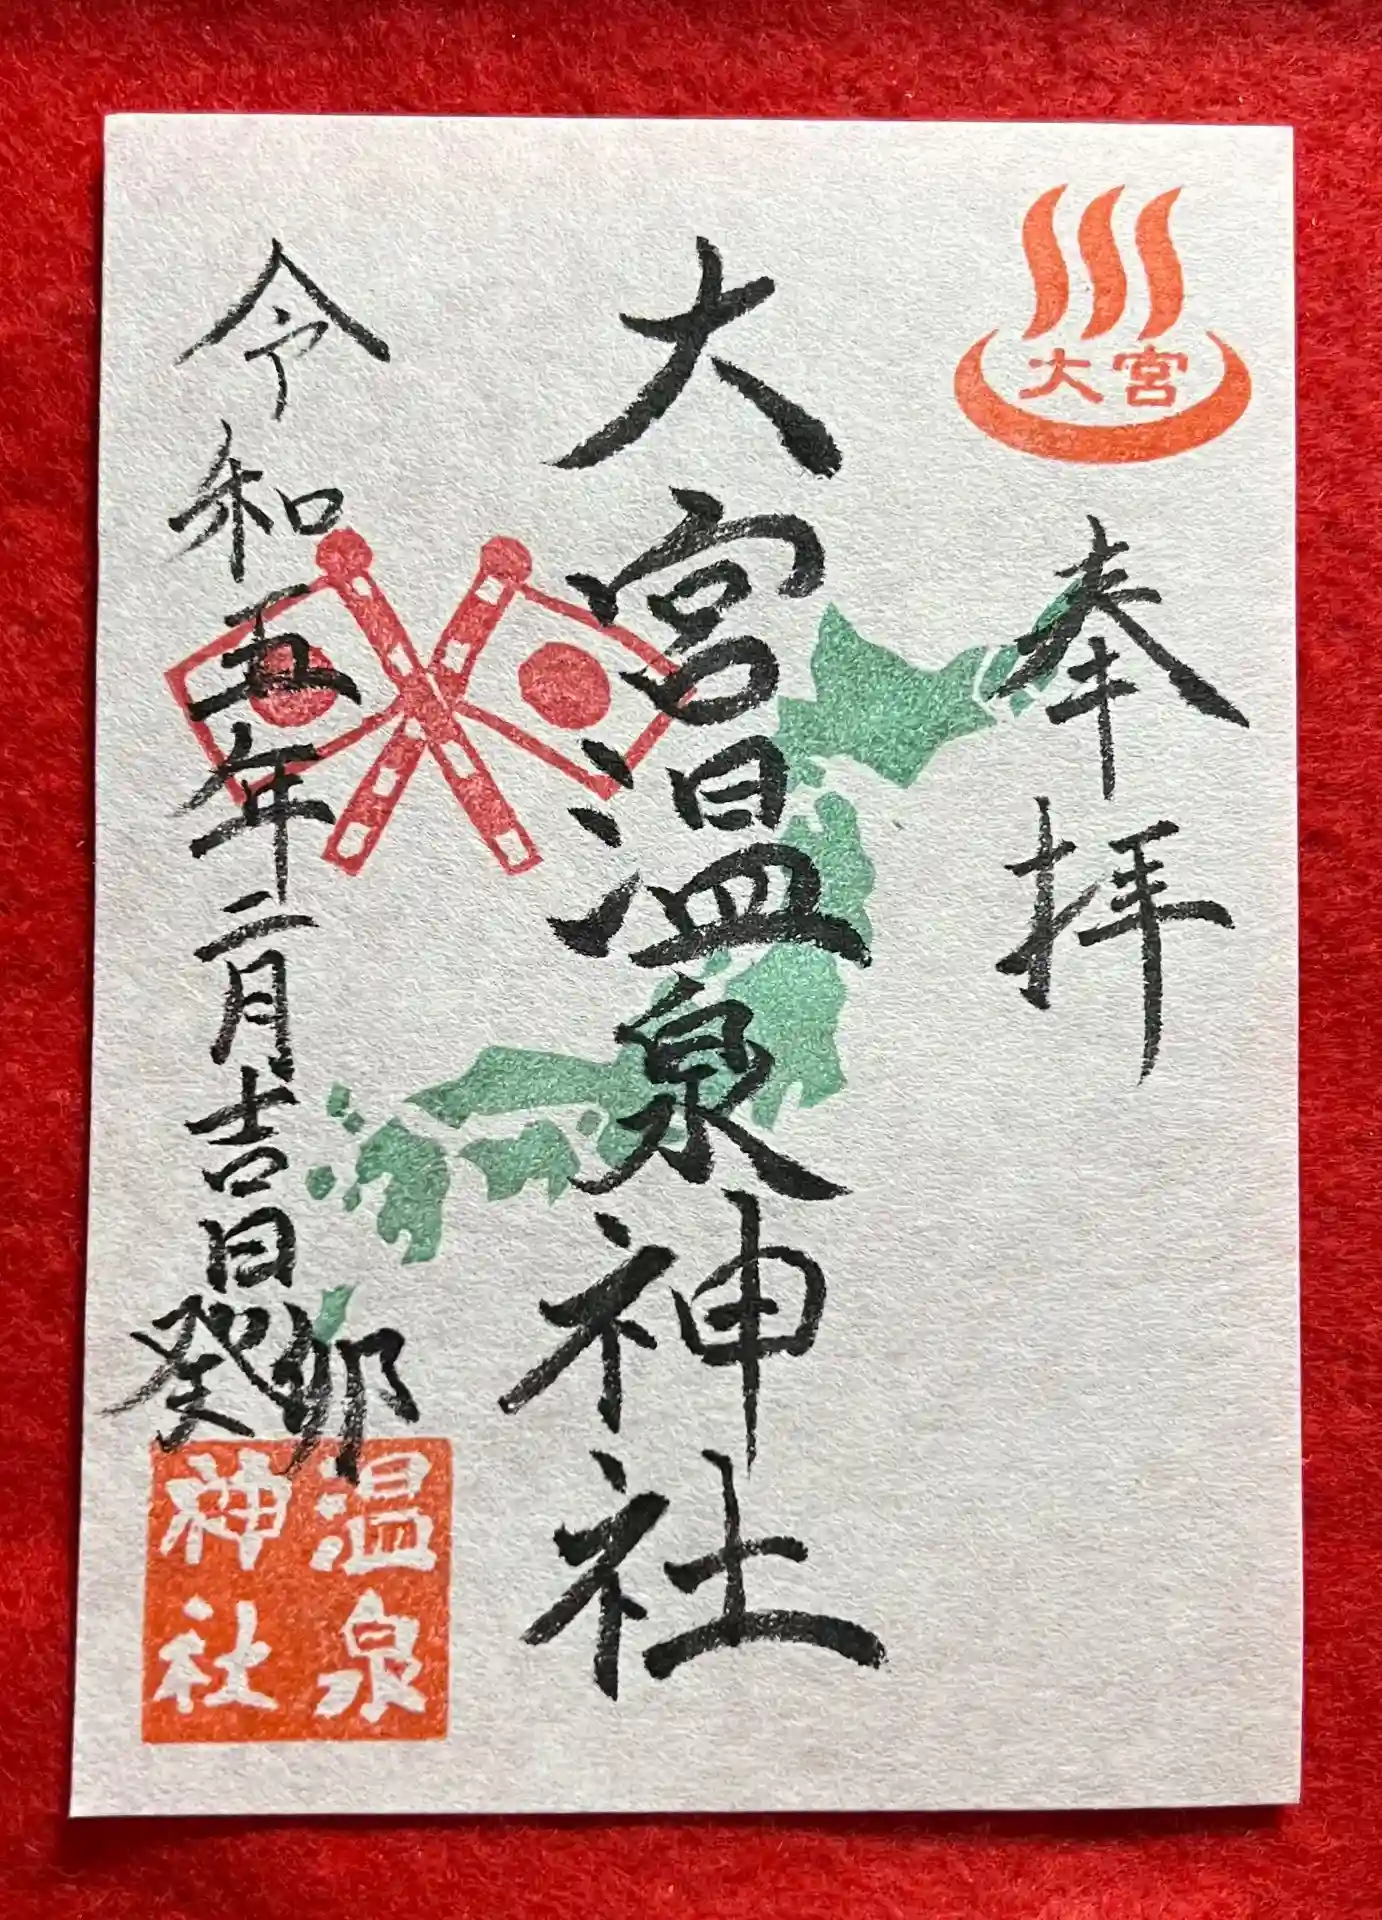 大宮
奉拝
大宮温泉神社
令和五年二月吉日
癸卯
温泉
神社